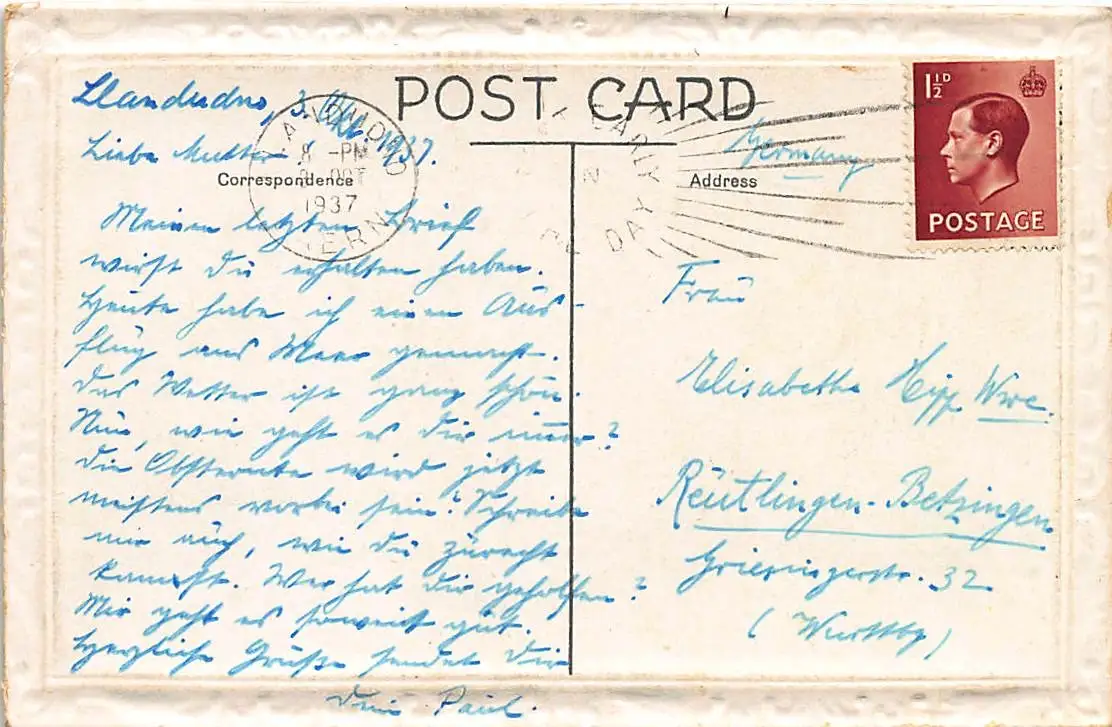 POST CARD
Correspondence
Address
1½D
POSTAGE
8 - PM
OCT
1937
Llandudno, 3. Okt. 1937.
Liebe Mutter!
Meinen letzten Brief
wirst du erhalten haben.
Heute habe ich einen Aus-
flug ans Meer gemacht.
Das Wetter ist ganz schön.
Nun, wie geht es dir immer?
Die Obsternte wird jetzt
meistens vorbei sein? Schreibe
mir auch, wie du zurecht
kamst. Wer hat dir geholfen?
Mir geht es soweit gut.
Herzliche Grüße sendet dir
dein Paul.
Germany
Frau
Elisabetha Hipp Wwe.
Reutlingen-Betzingen
32
(Württbg)